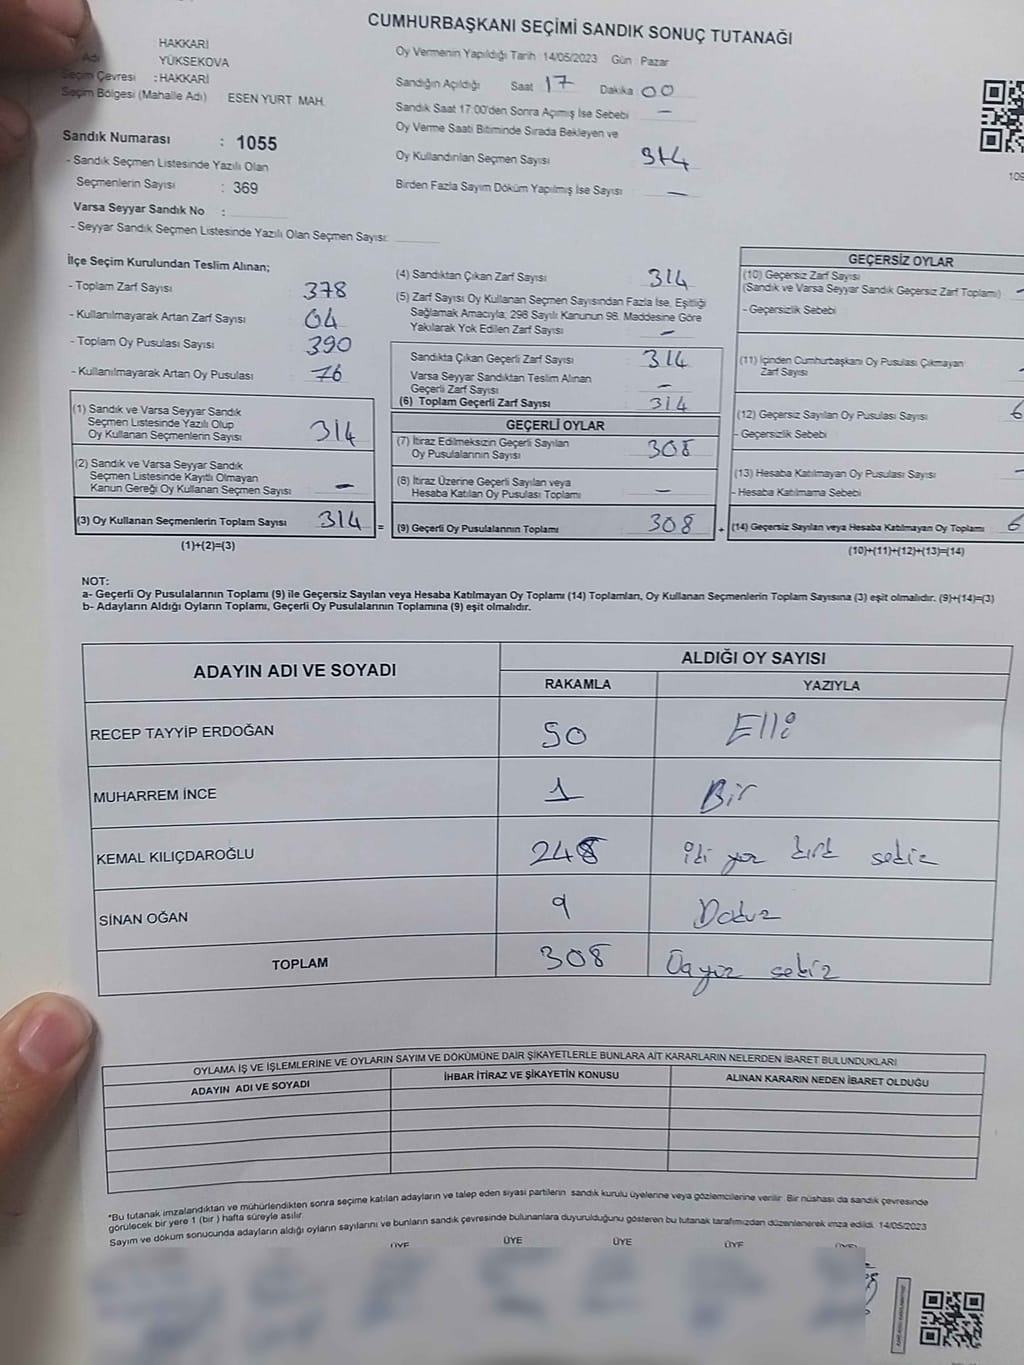 CUMHURBAŞKANI SEÇİMİ SANDIK SONUÇ TUTANAĞI
Adı HAKKARİ
YÜKSEKOVA
Seçim Çevresi : HAKKARİ
Seçim Bölgesi (Mahalle Adı) ESEN YURT MAH.
Sandık Numarası : 1055
- Sandık Seçmen Listesinde Yazılı Olan
Seçmenlerin Sayısı : 369
Varsa Seyyar Sandık No :
- Seyyar Sandık Seçmen Listesinde Yazılı Olan Seçmen Sayısı:
Oy Vermenin Yapıldığı Tarih : 14/05/2023 Gün : Pazar
Sandığın Açıldığı Saat 17 Dakika 00
Sandık Saat 17:00'den Sonra Açımış İse Sebebi —
Oy Verme Saati Bitiminde Sırada Bekleyen ve
Oy Kullandırılan Seçmen Sayısı 314
Birden Fazla Sayım Döküm Yapılmış İse Sayısı —
109
İlçe Seçim Kurulundan Teslim Alınan;
- Toplam Zarf Sayısı 378
- Kullanılmayarak Artan Zarf Sayısı 64
- Toplam Oy Pusulası Sayısı 390
- Kullanılmayarak Artan Oy Pusulası 76
(1) Sandık ve Varsa Seyyar Sandık
Seçmen Listesinde Yazılı Olup
Oy Kullanan Seçmenlerin Sayısı 314
(2) Sandık ve Varsa Seyyar Sandık
Seçmen Listesinde Kayıtlı Olmayan
Kanun Gereği Oy Kullanan Seçmen Sayısı —
(3) Oy Kullanan Seçmenlerin Toplam Sayısı 314 =
(1)+(2)=(3)
(4) Sandıktan Çıkan Zarf Sayısı 314
(5) Zarf Sayısı Oy Kullanan Seçmen Sayısından Fazla İse, Eşitliği
Sağlamak Amacıyla; 298 Sayılı Kanunun 98. Maddesine Göre
Yakılarak Yok Edilen Zarf Sayısı —
Sandıkta Çıkan Geçerli Zarf Sayısı 314
Varsa Seyyar Sandıktan Teslim Alınan
Geçerli Zarf Sayısı —
(6) Toplam Geçerli Zarf Sayısı 314
GEÇERLİ OYLAR
(7) İtiraz Edilmeksizin Geçerli Sayılan
Oy Pusulalarının Sayısı 308
(8) İtiraz Üzerine Geçerli Sayılan veya
Hesaba Katılan Oy Pusulası Toplamı —
(9) Geçerli Oy Pusulalarının Toplamı 308 +
GEÇERSİZ OYLAR
(10) Geçersiz Zarf Sayısı
(Sandık ve Varsa Seyyar Sandık Geçersiz Zarf Toplamı)
- Geçersizlik Sebebi
(11) İçinden Cumhurbaşkanı Oy Pusulası Çıkmayan
Zarf Sayısı
(12) Geçersiz Sayılan Oy Pusulası Sayısı 6
- Geçersizlik Sebebi
(13) Hesaba Katılmayan Oy Pusulası Sayısı
- Hesaba Katılmama Sebebi
(14) Geçersiz Sayılan veya Hesaba Katılmayan Oy Toplamı 6
(10)+(11)+(12)+(13)=(14)
NOT:
a- Geçerli Oy Pusulalarının Toplamı (9) ile Geçersiz Sayılan veya Hesaba Katılmayan Oy Toplamı (14) Toplamları, Oy Kullanan Seçmenlerin Toplam Sayısına (3) eşit olmalıdır. (9)+(14)=(3)
b- Adayların Aldığı Oyların Toplamı, Geçerli Oy Pusulalarının Toplamına (9) eşit olmalıdır.
ADAYIN ADI VE SOYADI ALDIĞI OY SAYISI
RAKAMLA YAZIYLA
RECEP TAYYİP ERDOĞAN 50 Elli
MUHARREM İNCE 1 Bir
KEMAL KILIÇDAROĞLU 248 iki yüz kırk sekiz
SİNAN OĞAN 9 Dokuz
TOPLAM 308 Üçyüz sekiz
OYLAMA İŞ VE İŞLEMLERİNE VE OYLARIN SAYIM VE DÖKÜMÜNE DAİR ŞİKAYETLERLE BUNLARA AİT KARARLARIN NELERDEN İBARET BULUNDUKLARI
ADAYIN ADI VE SOYADI İHBAR İTİRAZ VE ŞİKAYETİN KONUSU ALINAN KARARIN NEDEN İBARET OLDUĞU
*Bu tutanak imzalandıktan ve mühürlendikten sonra seçime katılan adayların ve talep eden siyasi partilerin sandık kurulu üyelerine veya gözlemcilerine verilir. Bir nüshası da sandık çevresinde
görülecek bir yere 1 (bir) hafta süreyle asılır.
Sayım ve döküm sonucunda adayların aldığı oyların sayılarını ve bunların sandık çevresinde bulunanlara duyurulduğunu gösteren bu tutanak tarafımızdan düzenlenerek imza edildi. 14/05/2023
ÜYE ÜYE ÜYE ÜYE ÜYE